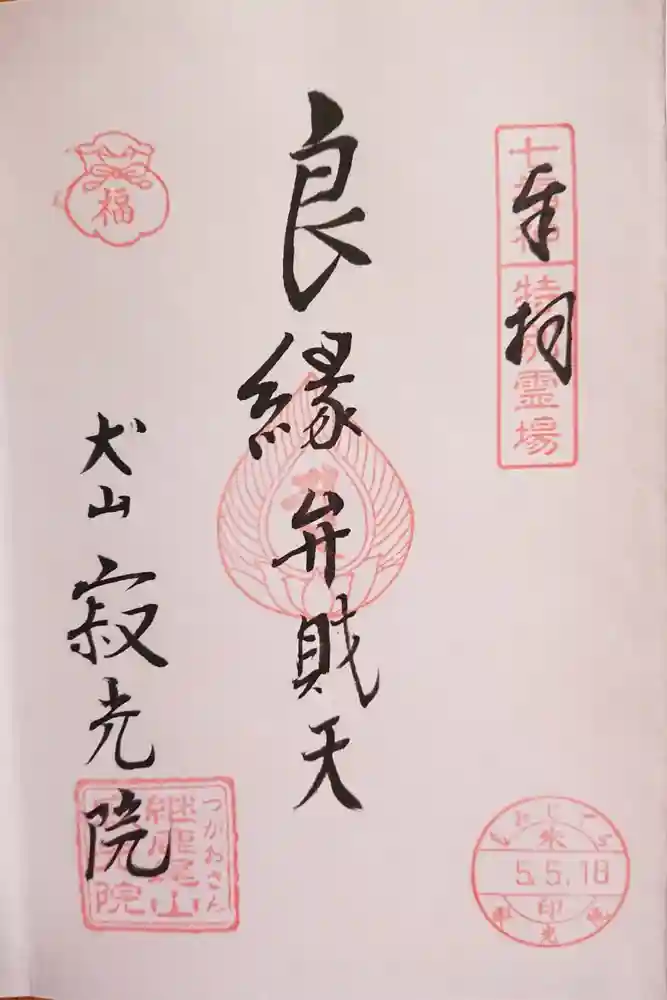 奉拝
七福神
特別霊場
良縁弁財天
福
犬山
寂光院
つがおさん
継鹿尾山
寂光院
5.5.18